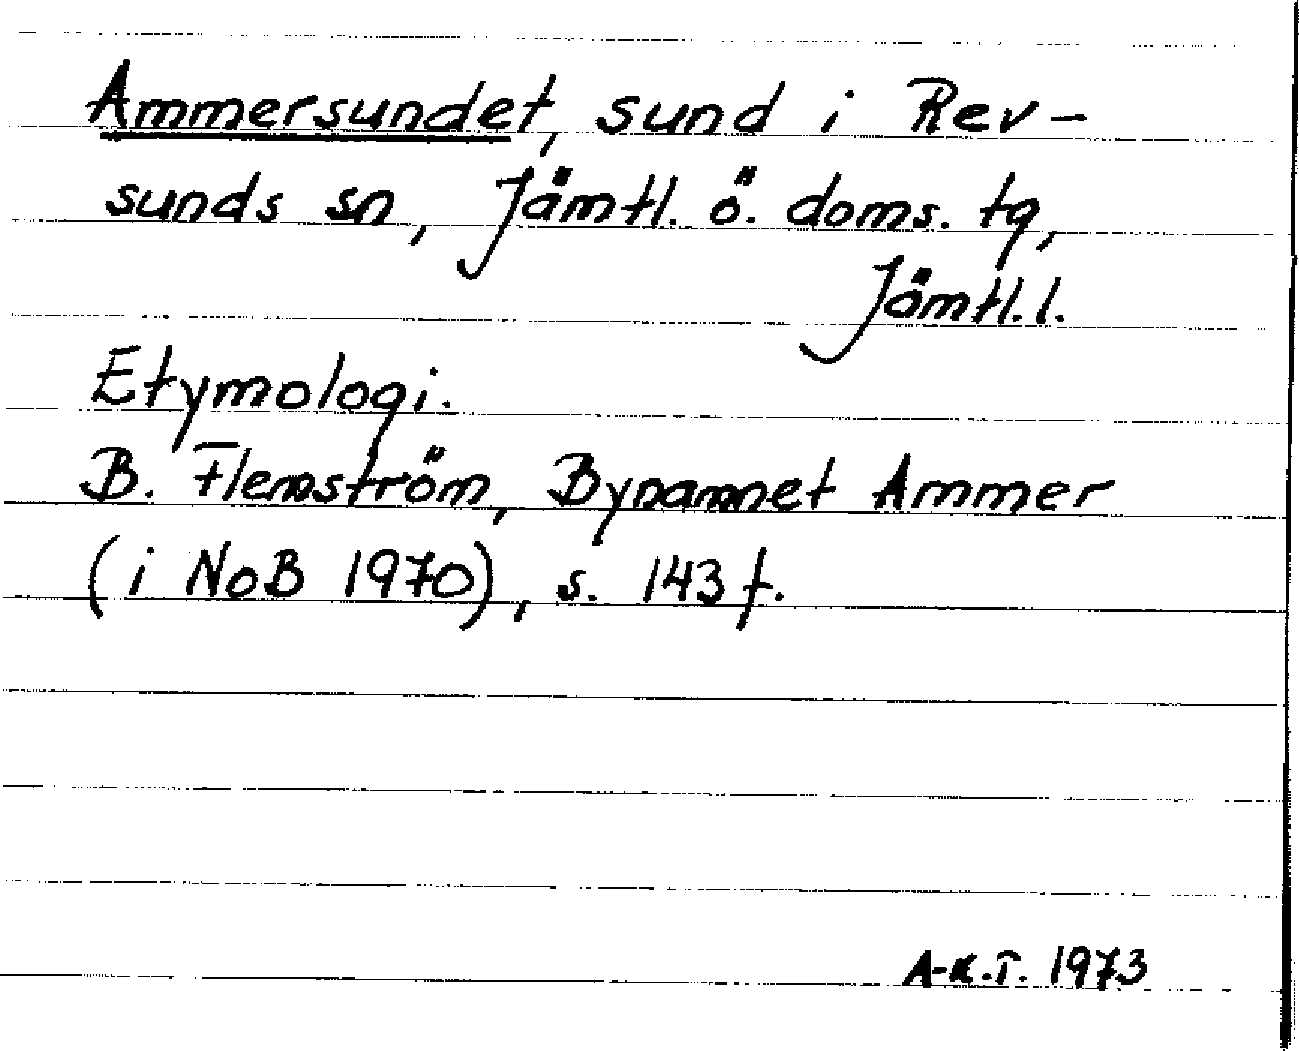 Ammersundet, sund i Rev-
sunds sn, Jämtl. ö. doms. tg,
Jämtl. l.
Etymologi.
B. Flemström, Bynamnet Ammer
(i NoB 1970), s. 143 f.
A-K.T. 1973